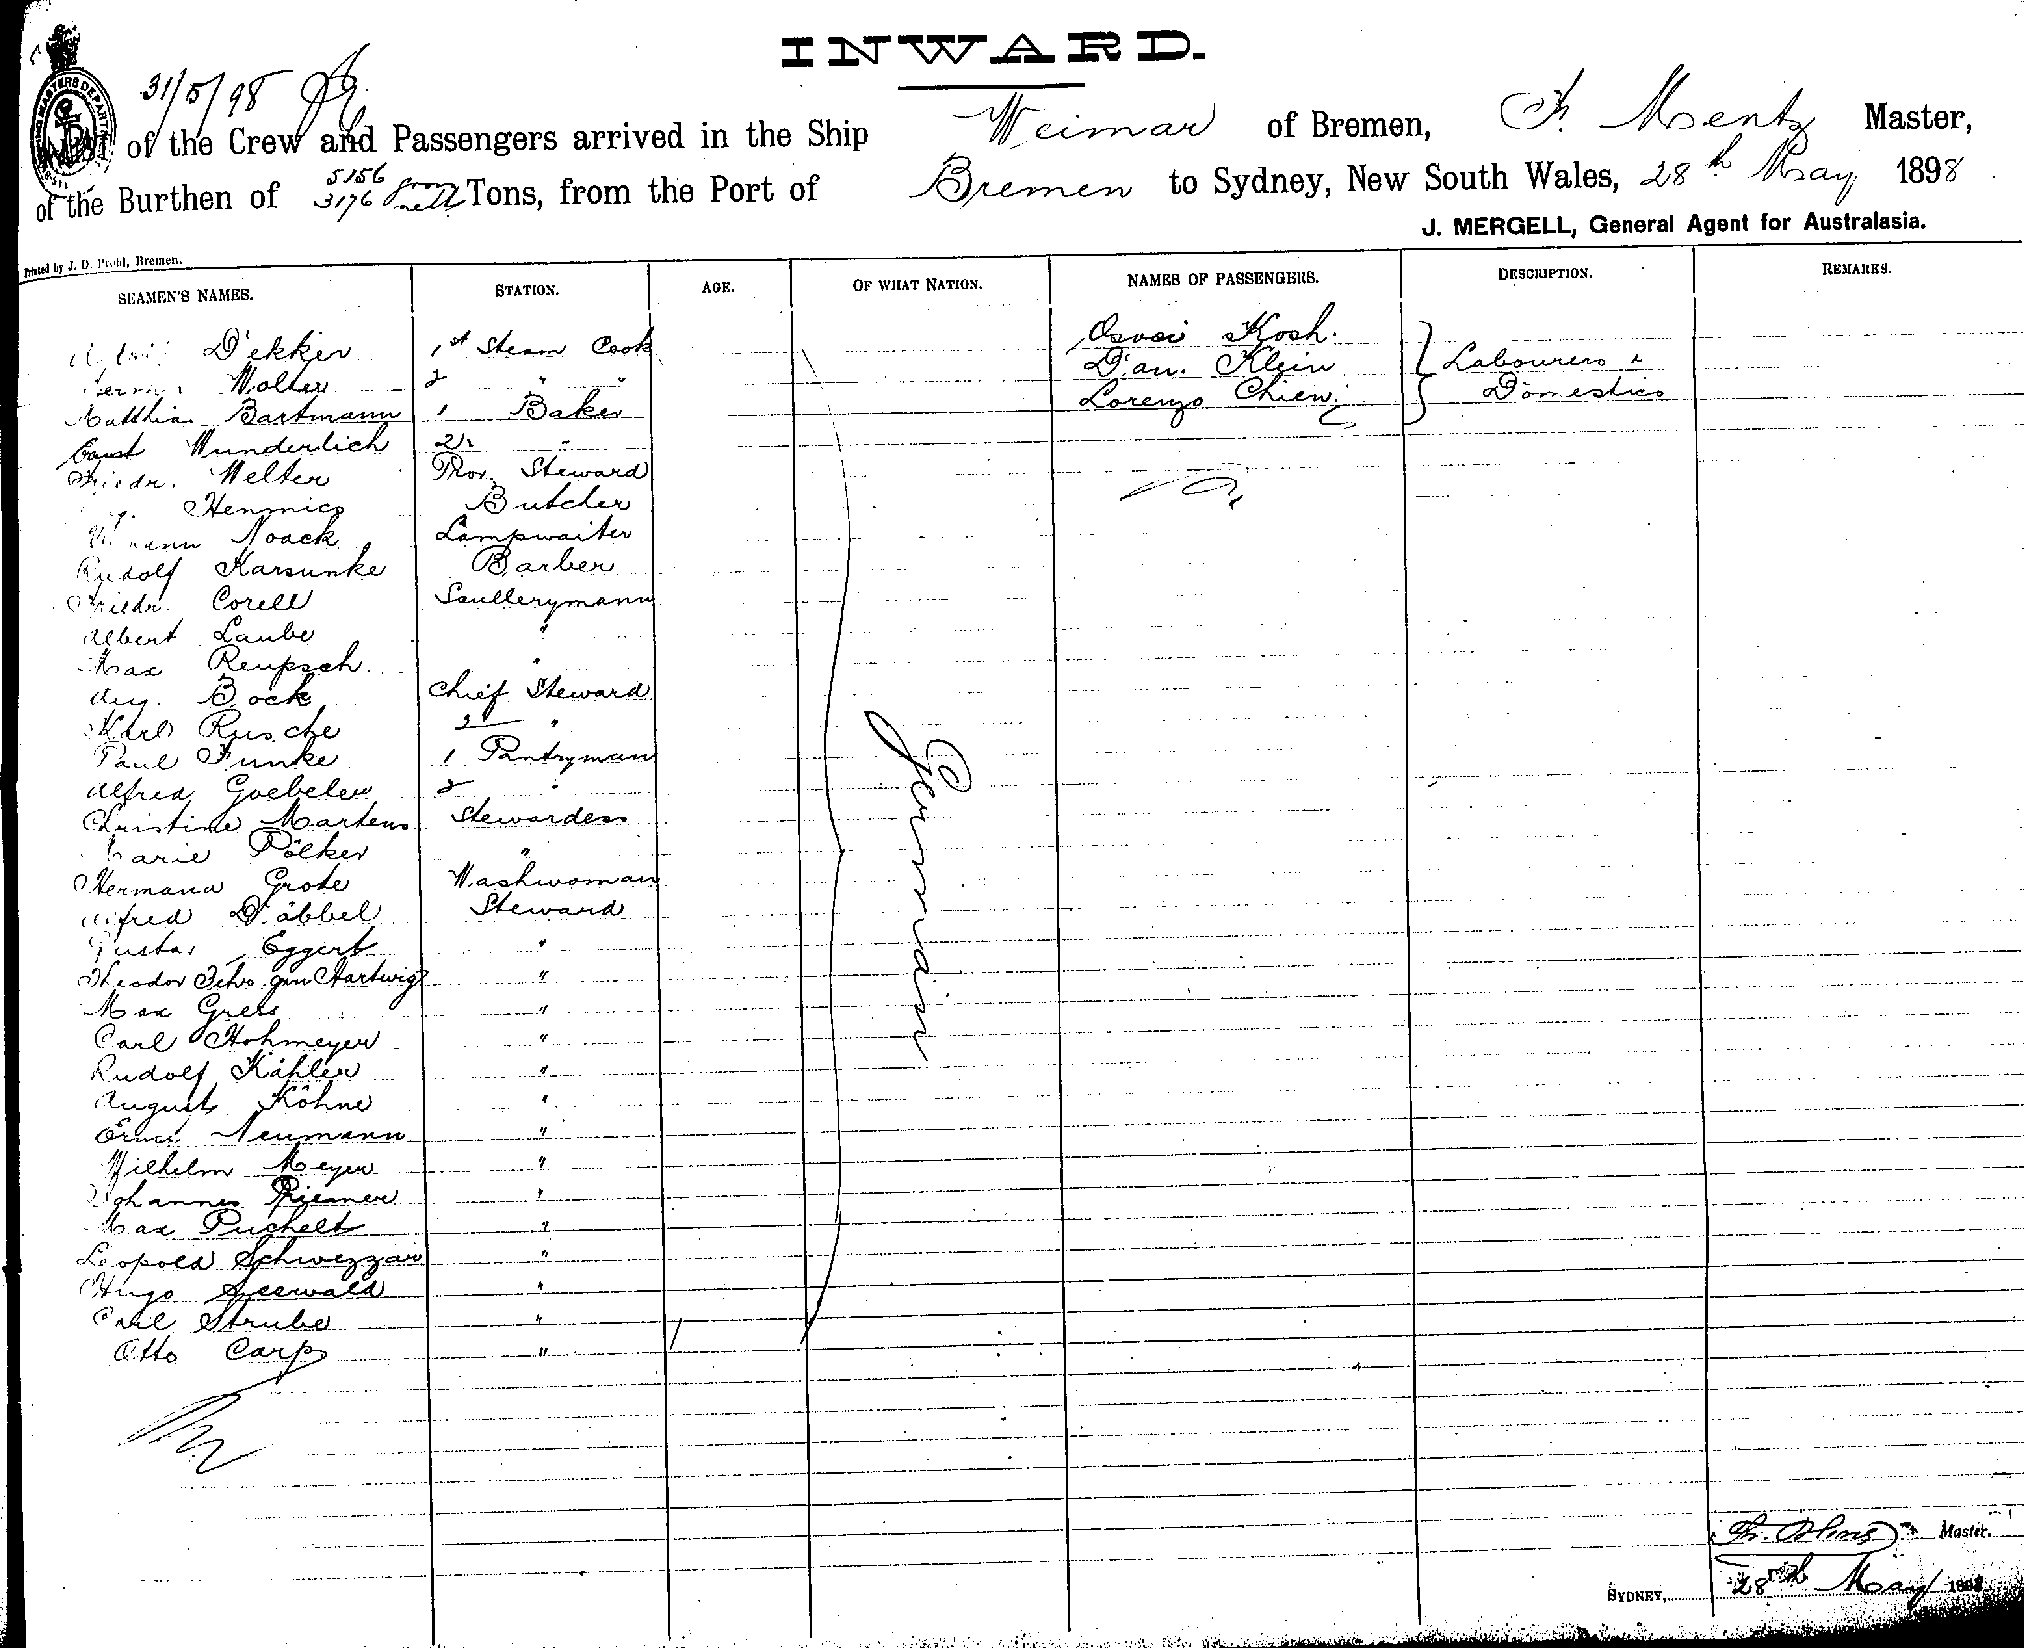 INWARD.
31/5/98
of the Crew and Passengers arrived in the Ship Weimar of Bremen, Fr. Mentz Master,
of the Burthen of 5156 gross 3176 nett Tons, from the Port of Bremen to Sydney, New South Wales, 28th May 1898
J. MERGELL, General Agent for Australasia.
Printed by J. D. Bremen.
SEAMEN'S NAMES. STATION. AGE. OF WHAT NATION. NAMES OF PASSENGERS. DESCRIPTION. REMARKS.
Dekker 1st Steam Cook Kosh Labourers &
Wolter 2 " " Dan. Klein Domestics
Matthias Bartmann 1 Baker Lorenzo
Wunderlich 2 "
Friedr. Welter Steward
Butcher
Noack Lampwaiter
Rudolf Karsunke Barber
Friedr. Corell Scullerymann
Albert Laube "
Max Reupsch "
Aug. Bock Chief Steward
Karl Rusche 2 "
Paul Funke 1 Pantryman
Alfred Goebeler 2 "
Christine Martens Stewardess
Marie Pölker "
Hermana Grote Washwoman
Alfred Däbbel Steward
Gustav Eggert "
Theodor gen Hartwig "
Max "
Carl Hohmeyer "
Rudolf Kähler "
August Köhne "
Ernst Neumann "
Wilhelm Meyer "
Johannes Riemer "
Max Puchelt "
Leopold Schwezzar "
Hugo Seewald "
Carl Strube "
Otto Carp "
German
Master.
SYDNEY, 28th May 1898